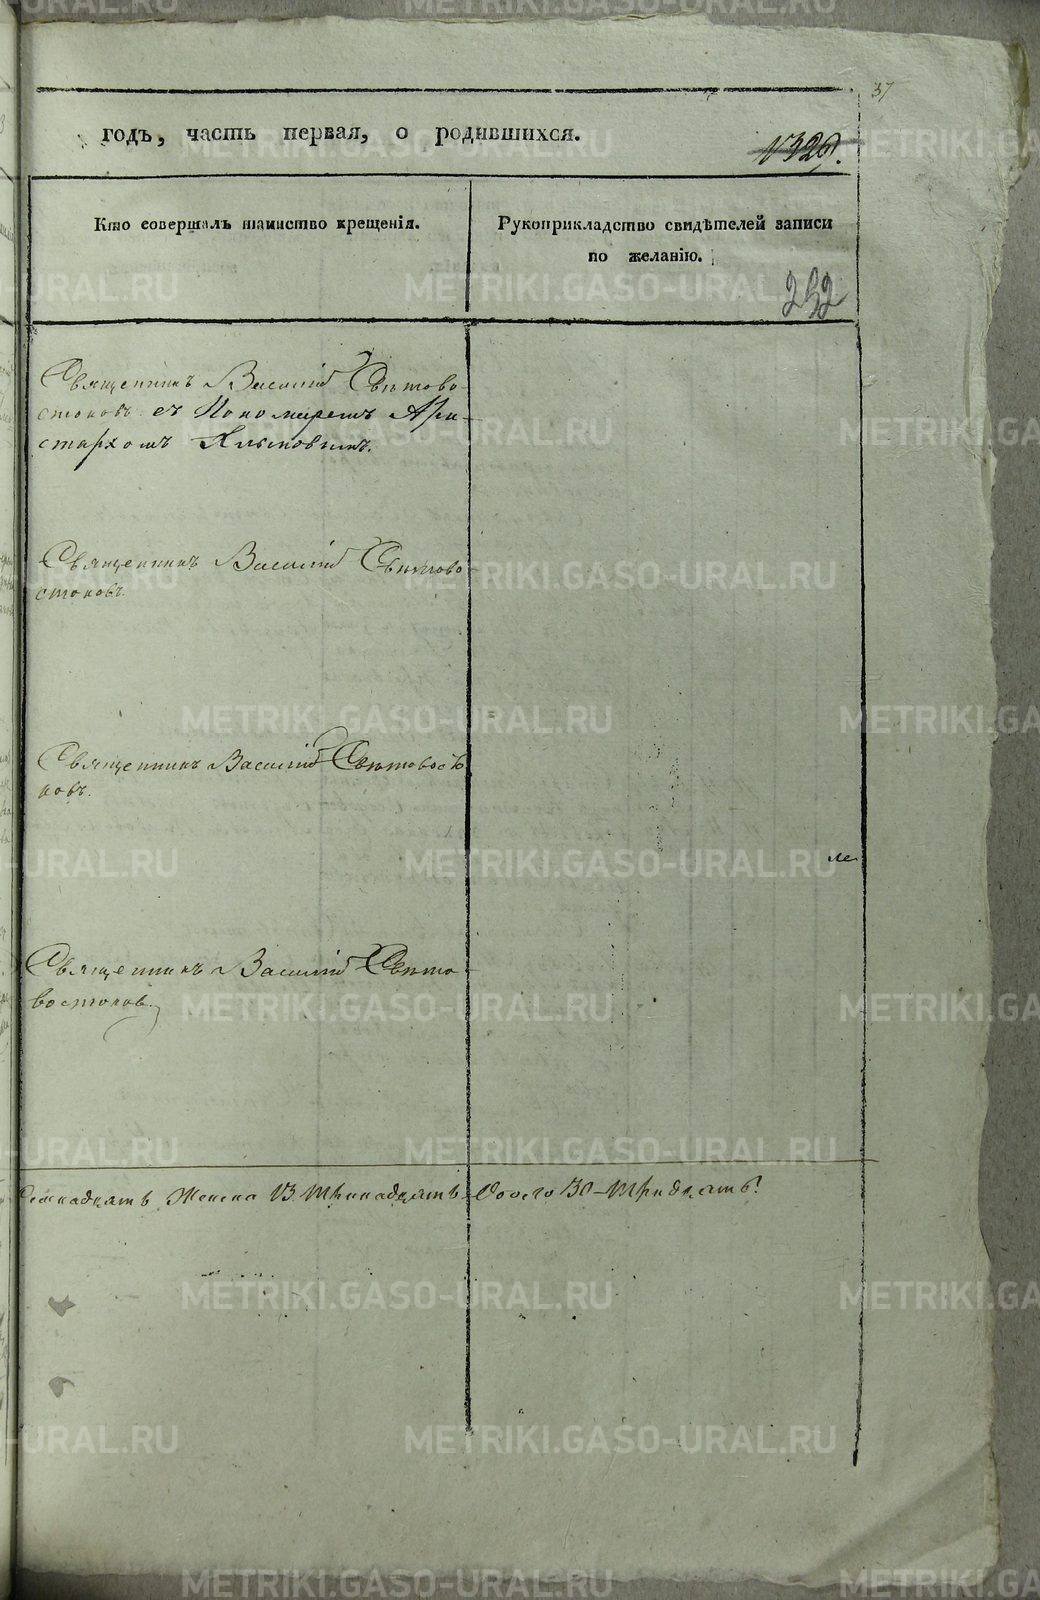 37
годъ, часть первая, о родившихся.
1326.
Кто совершалъ таинство крещенія.
Рукоприкладство свидѣтелей записи
по желанію.
252
Священникъ Василій Свѣтово-
стоковъ съ Пономаремъ Ари-
стархомъ
Священникъ Василій Свѣтово
стоковъ.
Священникъ Василій Свѣтовосто
ковъ.
Священникъ Василій Свѣто
востоковъ.
Семнадцать Женска 13 тринадцать Обоего 30 тридцать.
METRIKI.GASO-URAL.RU